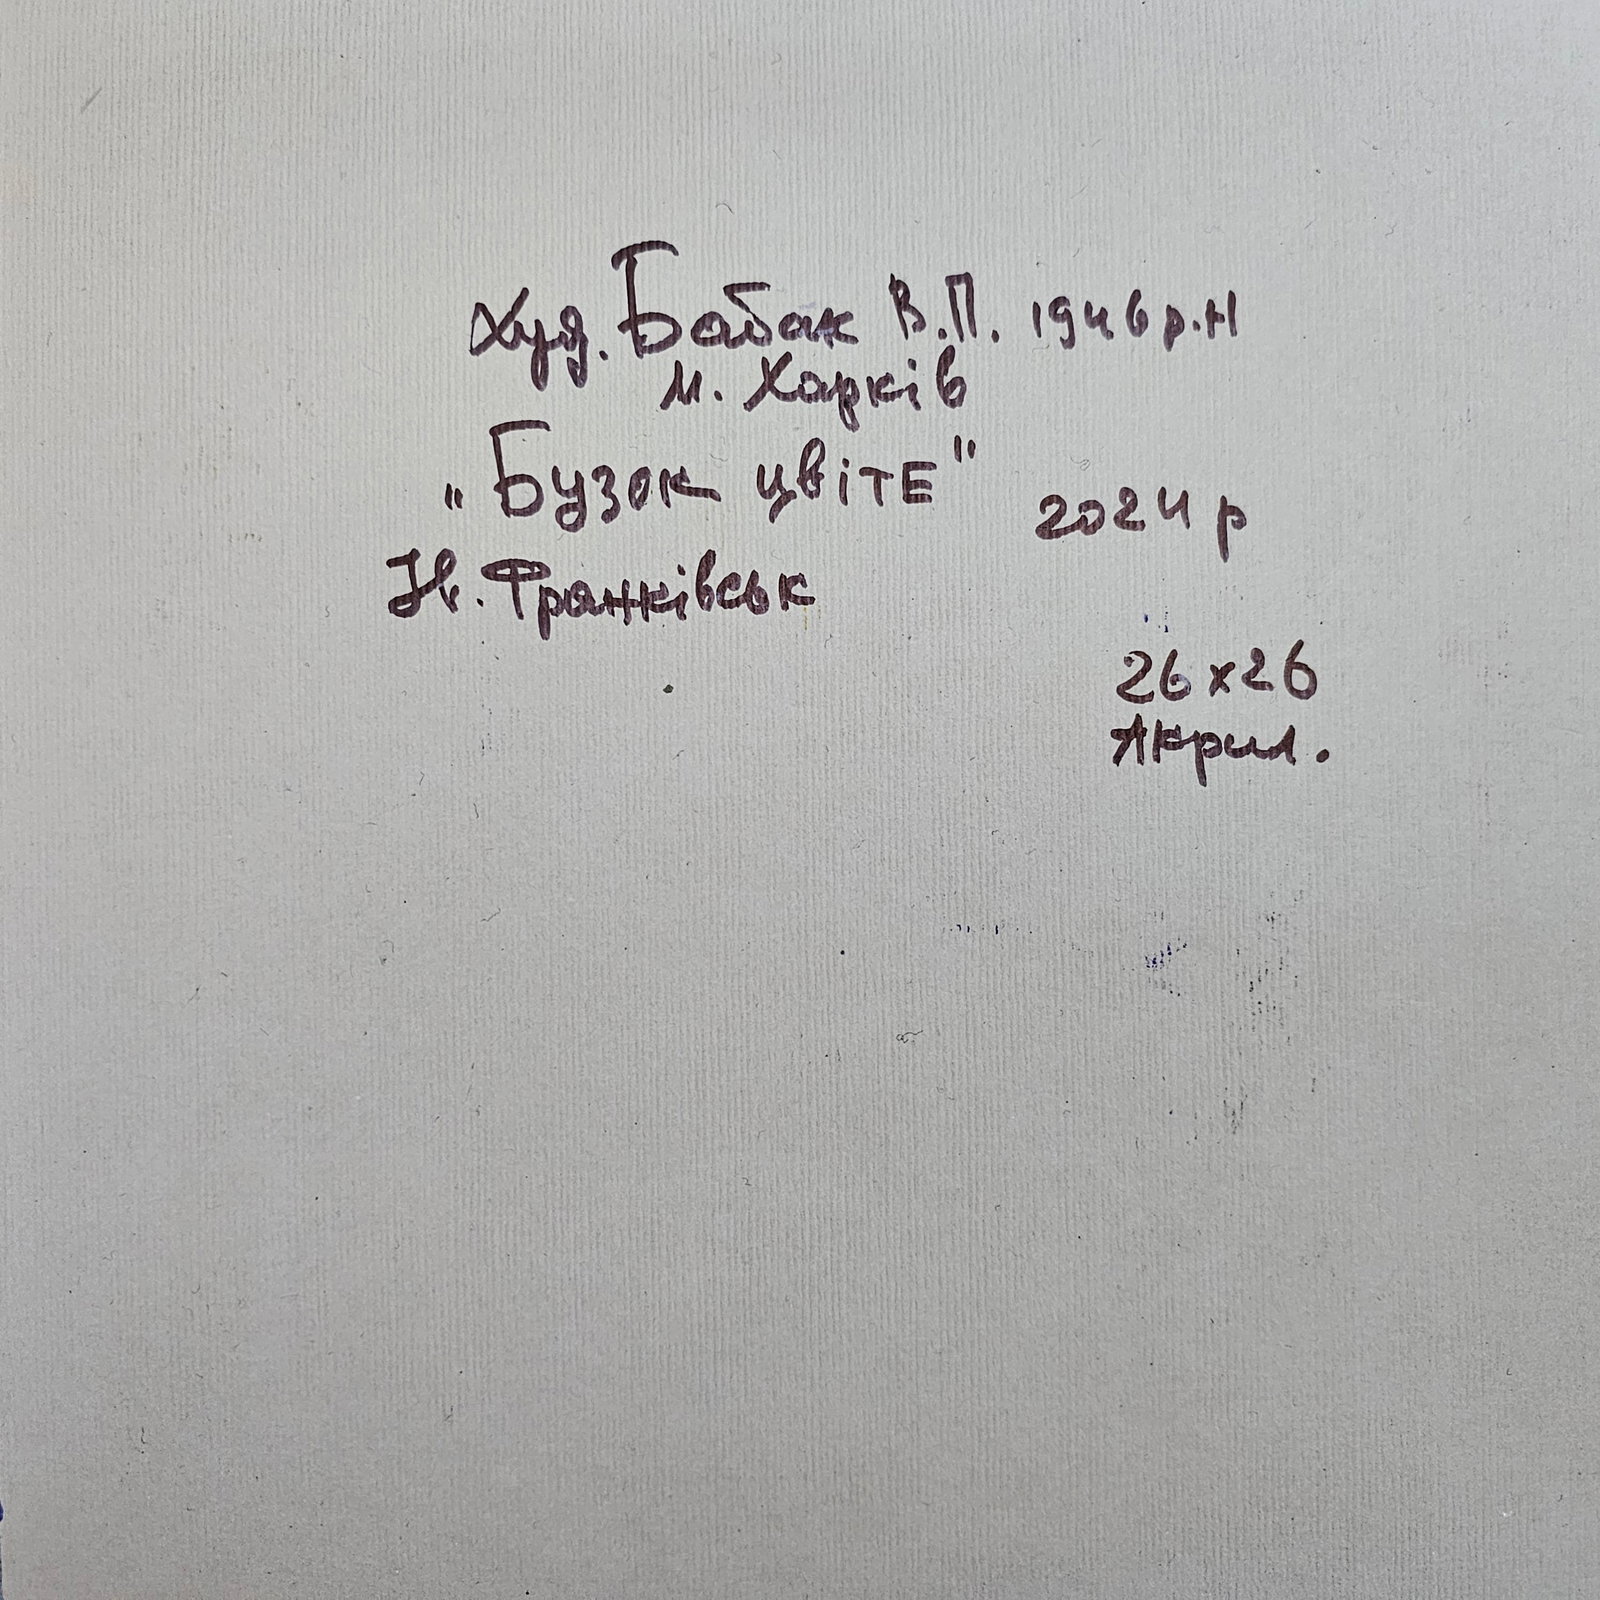 Худ. Бабак В.П. 1946 р.н
м. Харків
"Бузок цвіте" 2024 р
Ів. Франківськ
26 х 26
Акрил.